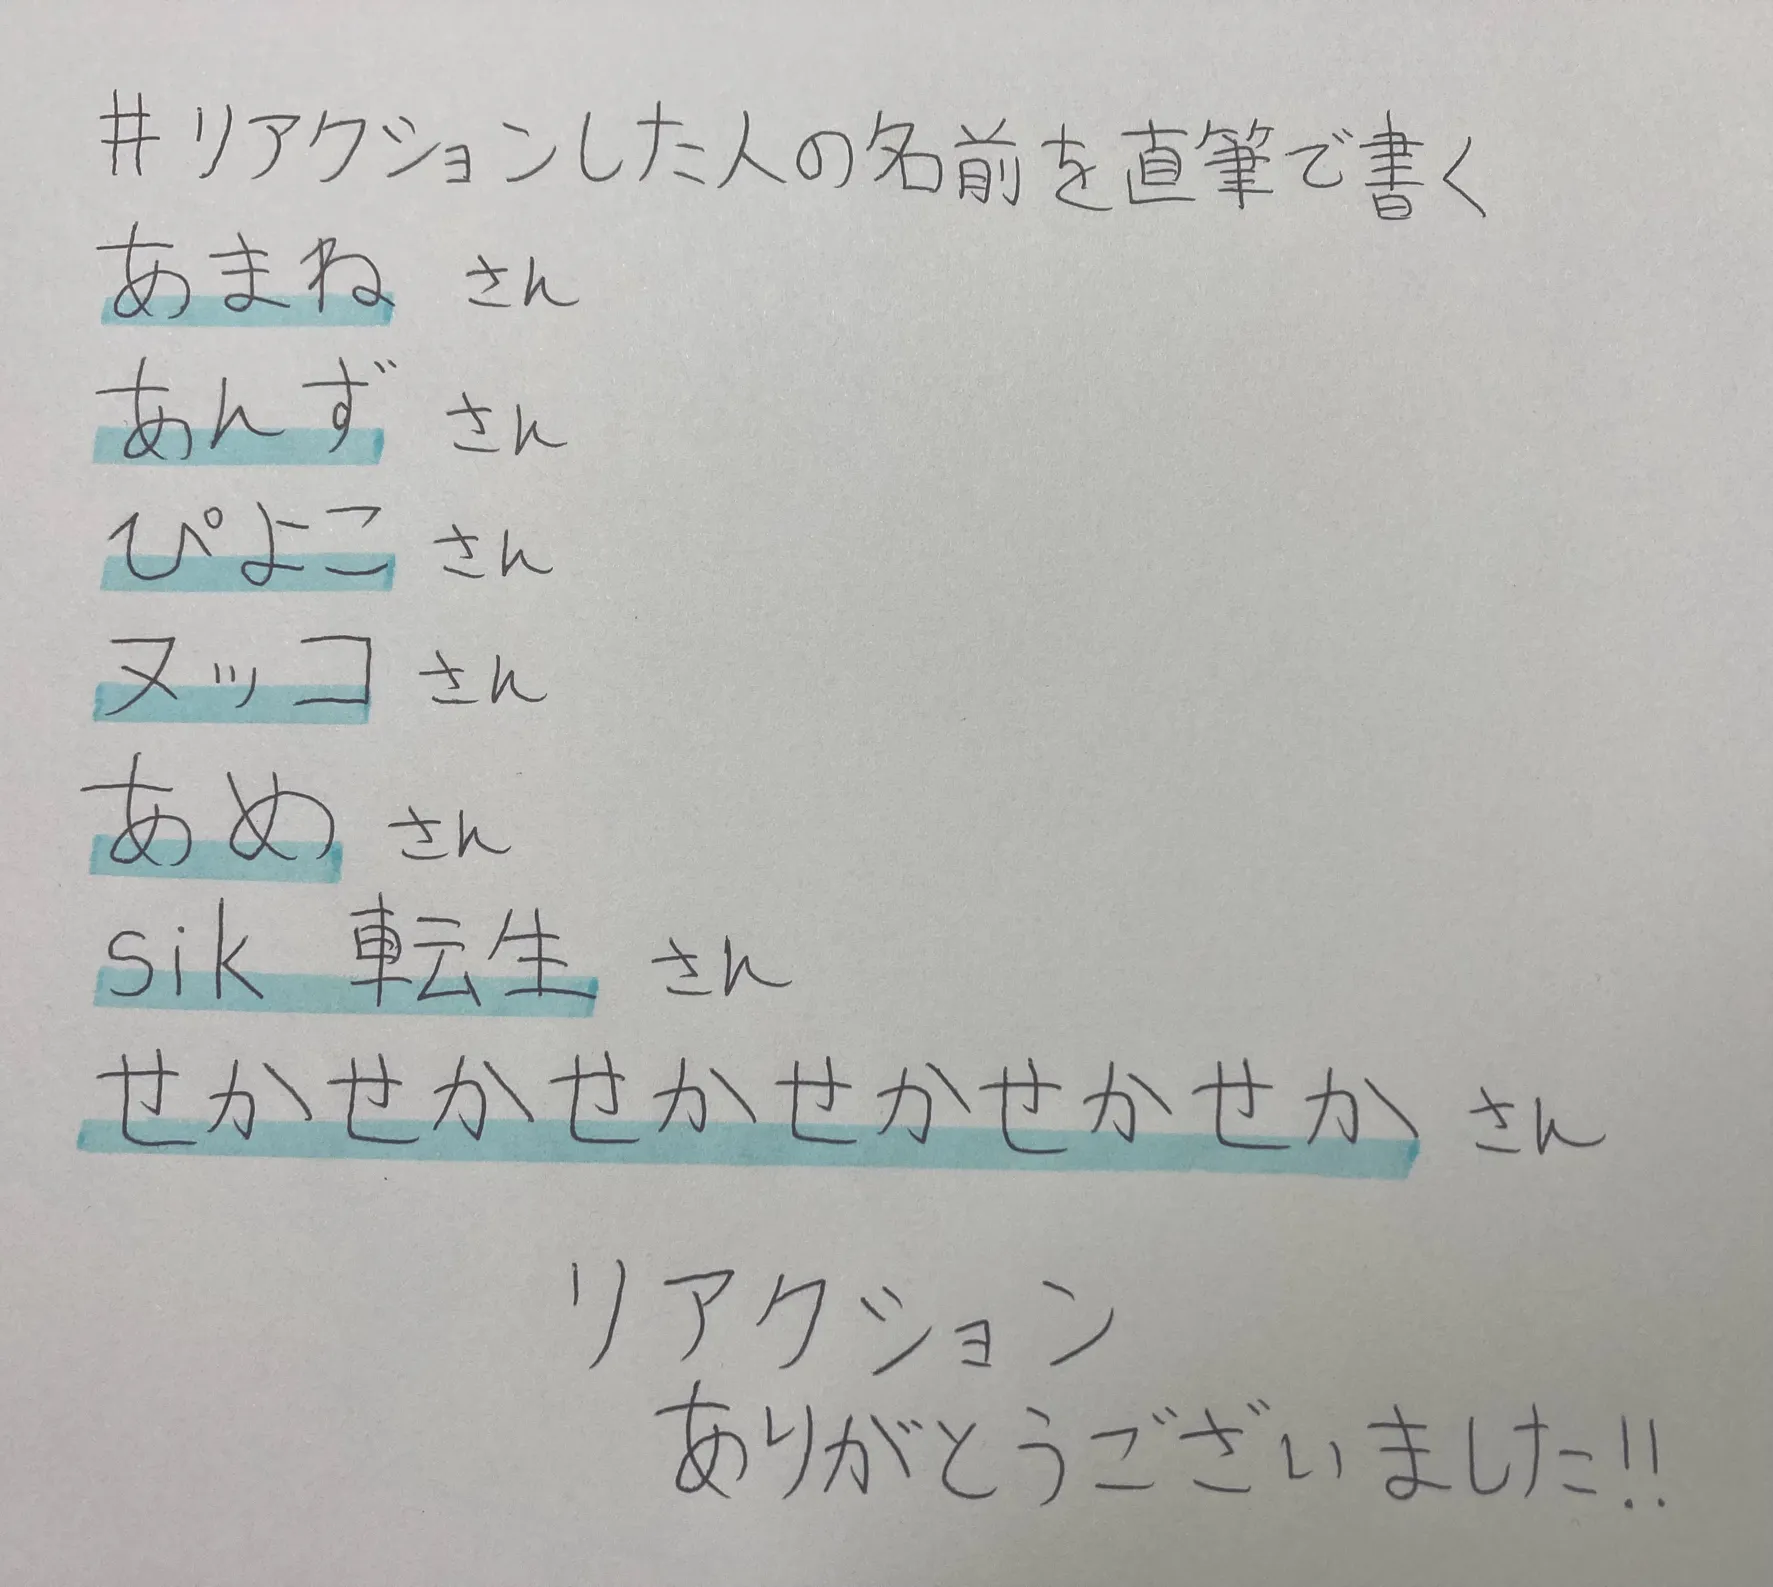 #リアクションした人の名前を直筆で書く
あまね さん
あんず さん
ぴよこ さん
ヌッコ さん
あめ さん
sik 転生 さん
せかせかせかせかせかせか さん
リアクション
ありがとうございました!!